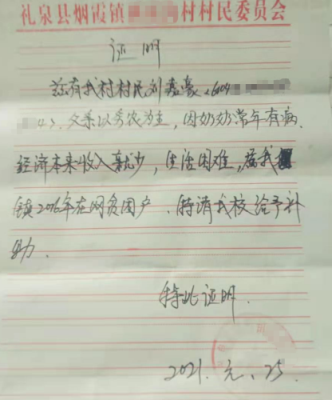 礼泉县烟霞镇村村民委员会
证明
兹有我村村民刘
父亲以务农为主,因奶奶常年有病
经济本来收入就少,生活困难,属我
镇2016年在网贫困户.特请我校给予补
助.
特此证明.
2021.元.25